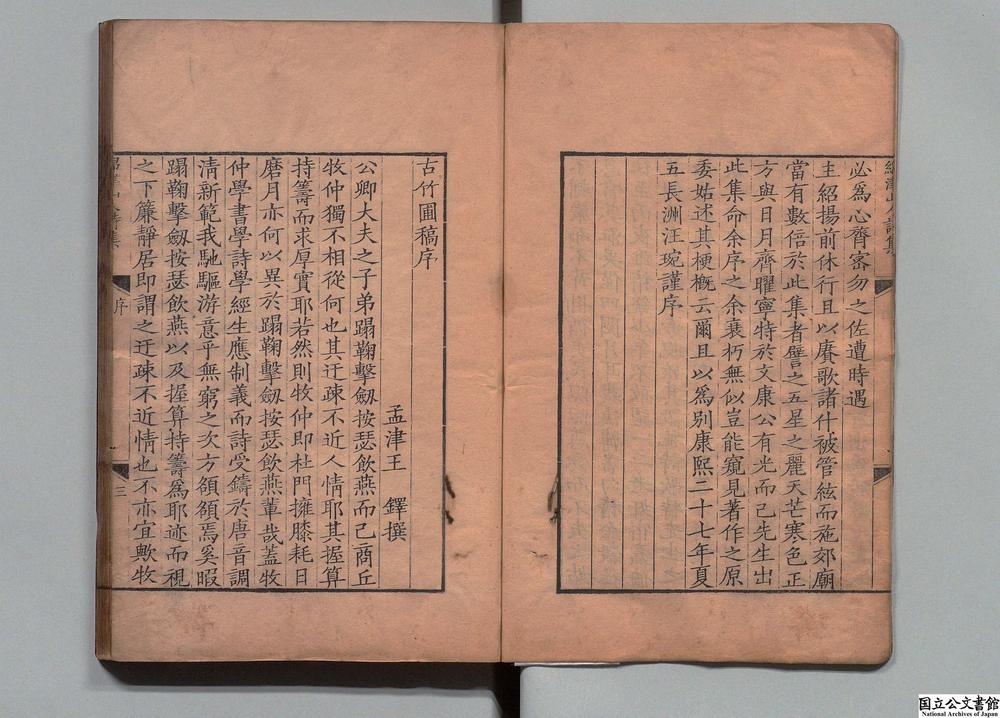 必為心膂密勿之佐遭時遇
主紹揚前休行且以賡歌諸什被管絃而施郊廟
當有數倍於此集者譬之五星之麗天芒寒色正
方與日月齊曜寧特於文康公有光而已先生出
此集命余序之余衰朽無似豈能窺見著作之原
委姑述其梗概云爾且以為別康熙二十七年夏
五長洲汪琬謹序
古竹圃稿序
孟津王　鐸撰
公卿大夫之子弟蹋鞠擊劔按瑟飲燕而已商丘
牧仲獨不相從何也其迂疎不近人情耶其握算
持籌而求厚實耶若然則牧仲即杜門擁膝耗日
磨月亦何以異於蹋鞠擊劔按瑟飲燕輩哉蓋牧
仲學書學詩學經生應制義而詩受鑄於唐音調
清新範我馳驅游意乎無窮之次方頟頟焉奚暇
蹋鞠擊劔按瑟飲燕以及握算持籌為耶迹而視
之下簾靜居即謂之迂疎不近情也不亦宜歟牧
序
三
国立公文書館
National Archives of Japan